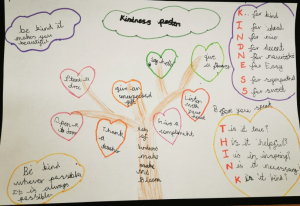 be kind it
makes you
beautiful
Kindness poster
K.. for kind
I for ideal
N for nice
D for decent
N for
E for Easy
S for sympathetic
S for sweet
Plant a
tree
give an
unexpected
gift
say hello
give
a
Open a
door
Thank
a
teacher
Give a
compliment
Listen
with
your
acts
of
kindness
make
make
the
bloom
Before you speak
T is it true?
H is it helpful?
I is it inspiring?
N is it necessary
K is it kind?
Be kind
whenever possible
It is always
possible